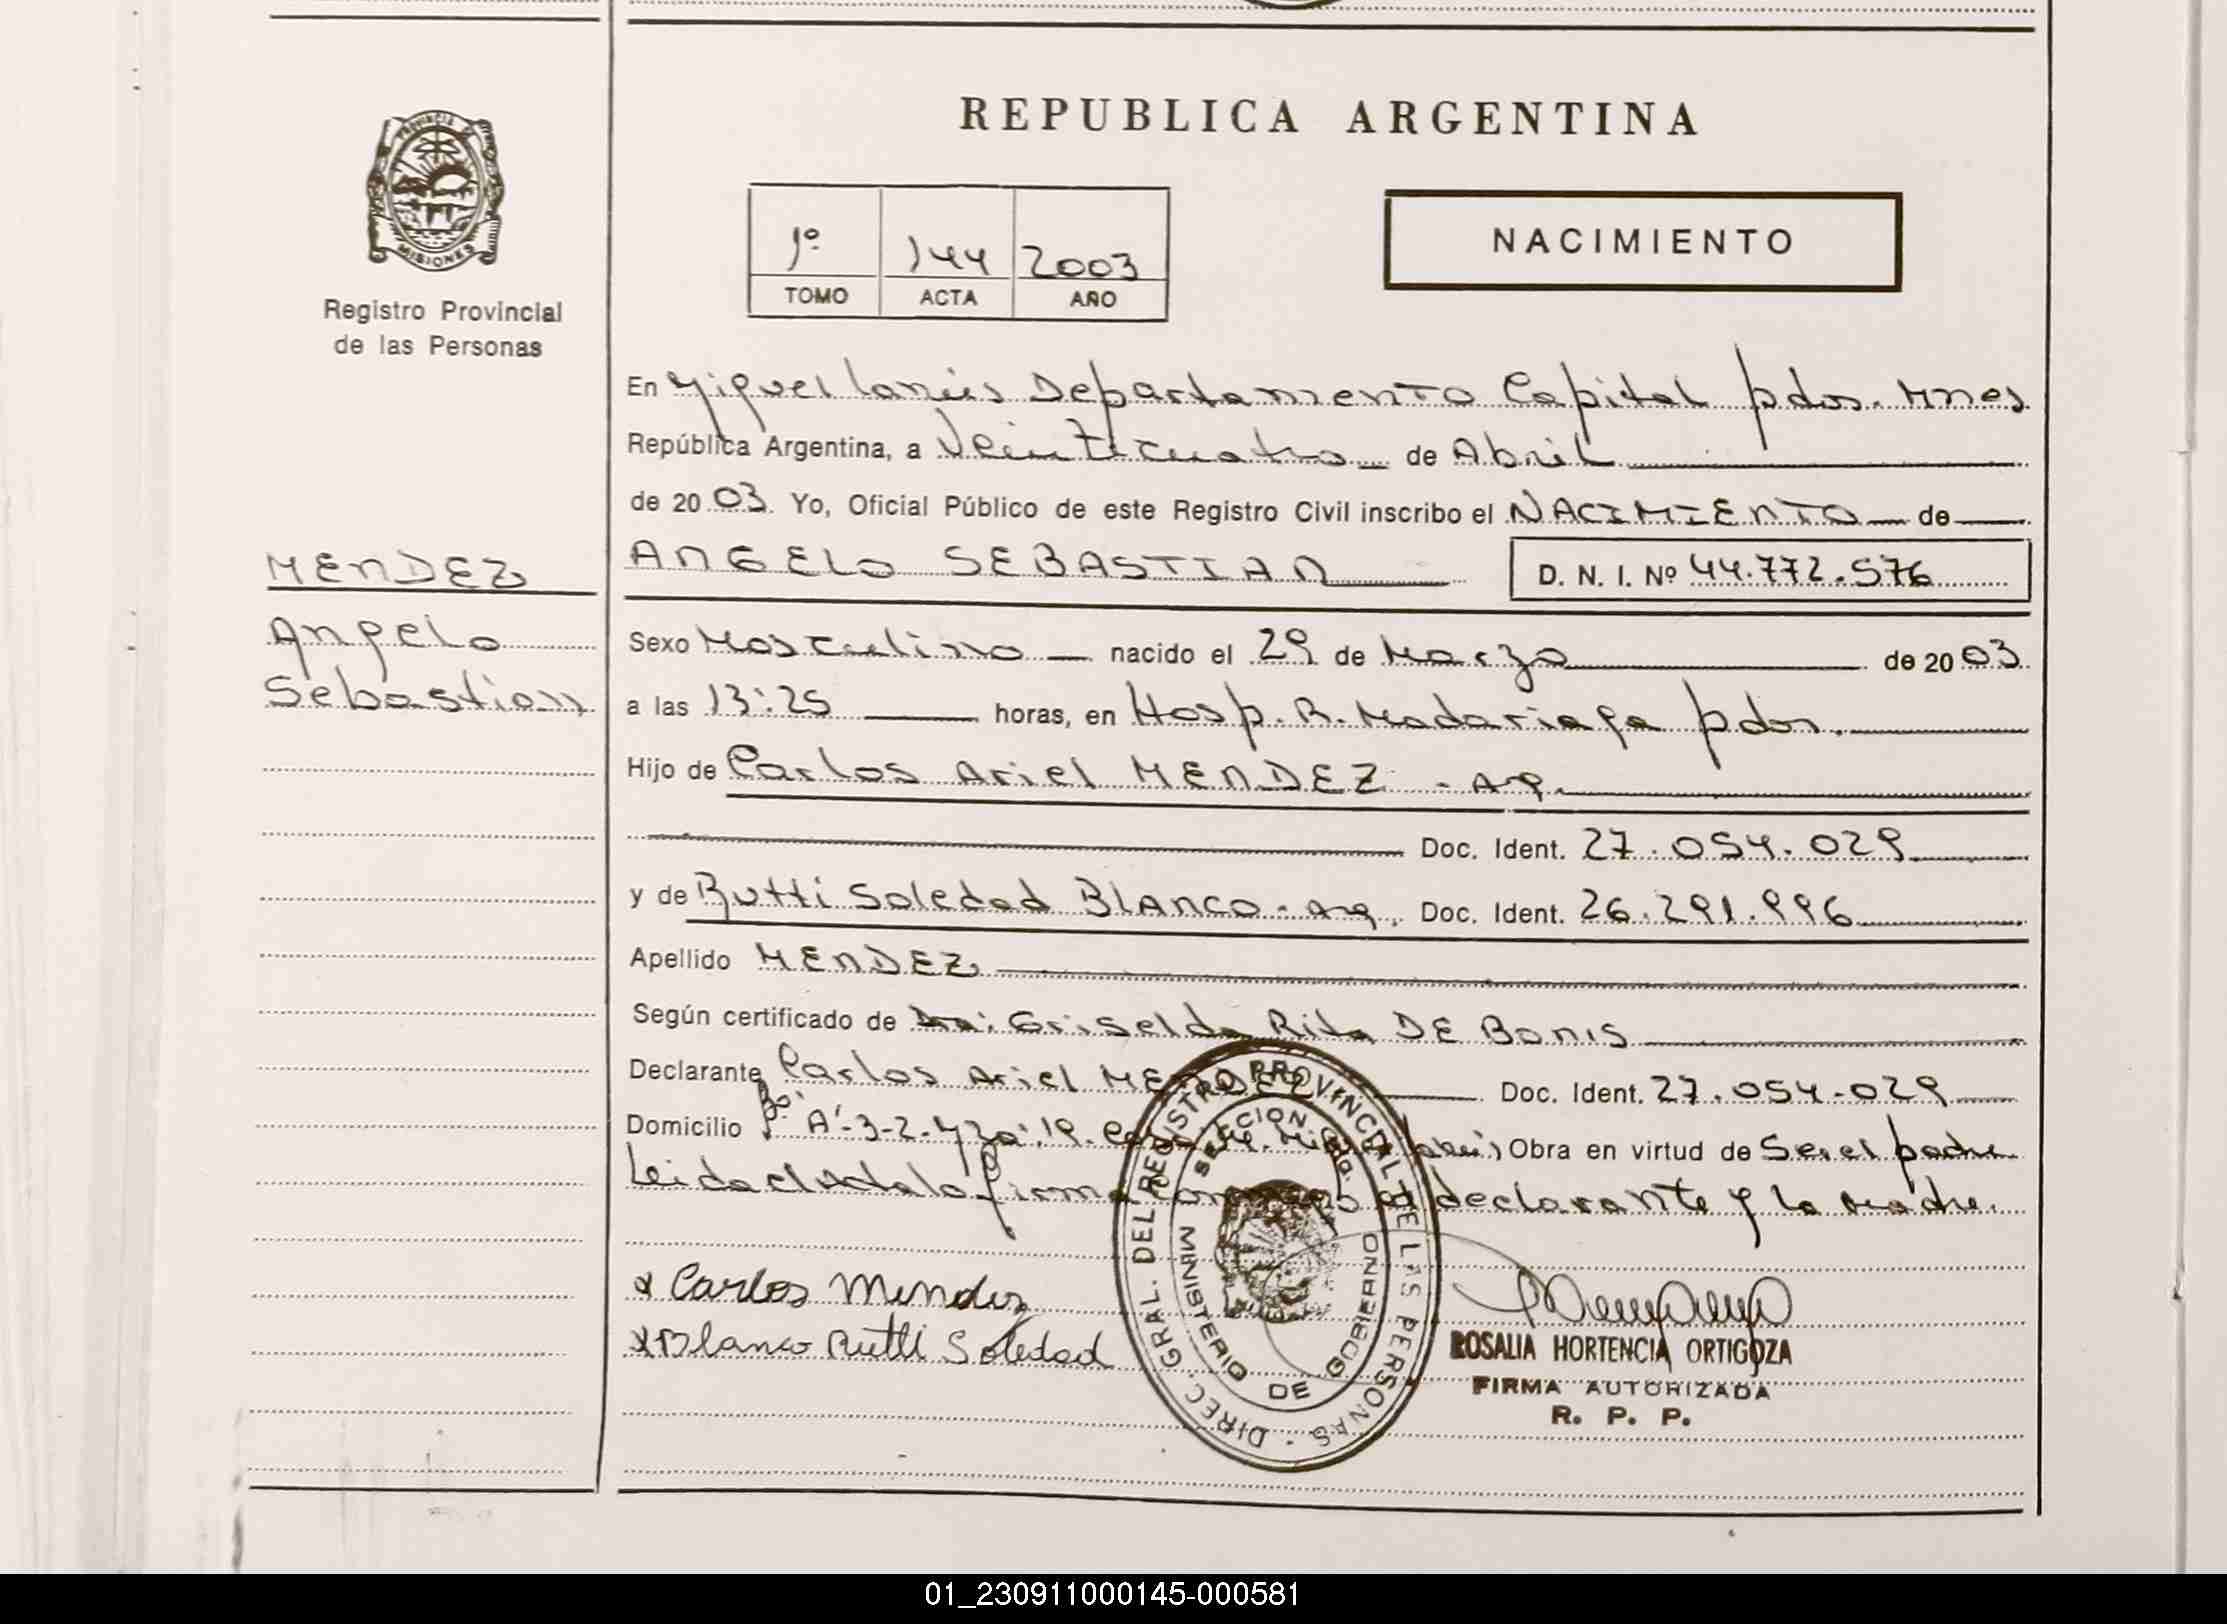 REPUBLICA ARGENTINA
PROVINCIA DE
MISIONES
Registro Provincial
de las Personas
1º 144 2003
TOMO ACTA AÑO
NACIMIENTO
En Miguel Lanús Departamento Capital pdas. Mnes
República Argentina, a Veinticuatro de Abril
de 2003 Yo, Oficial Público de este Registro Civil inscribo el NACIMIENTO de
MENDEZ
Angelo
Sebastian
ANGELO SEBASTIAN D. N. I. Nº 44.772.576
Sexo Masculino nacido el 29 de Marzo de 2003
a las 13:25 horas, en Hosp. R. Madariaga pdas.
Hijo de Carlos Ariel MENDEZ - Arg.
Doc. Ident. 27.054.029
y de Rutti Soledad BLANCO - Arg. Doc. Ident. 26.291.996
Apellido MENDEZ
Según certificado de Griselda Rita DE BONIS
Declarante Carlos Ariel MENDEZ Doc. Ident. 27.054.029
Domicilio Bº "A"-3-2- Obra en virtud de Ser el padre
Leida el Acta la firma conmigo el declarante y la madre.
Carlos Mendez
Blanco Rutti Soledad
DIREC. GRAL. DEL REGISTRO PROVINCIAL DE LAS PERSONAS
MINISTERIO DE GOBIERNO
ROSALIA HORTENCIA ORTIGOZA
FIRMA AUTORIZADA
R. P. P.
01_230911000145-000581